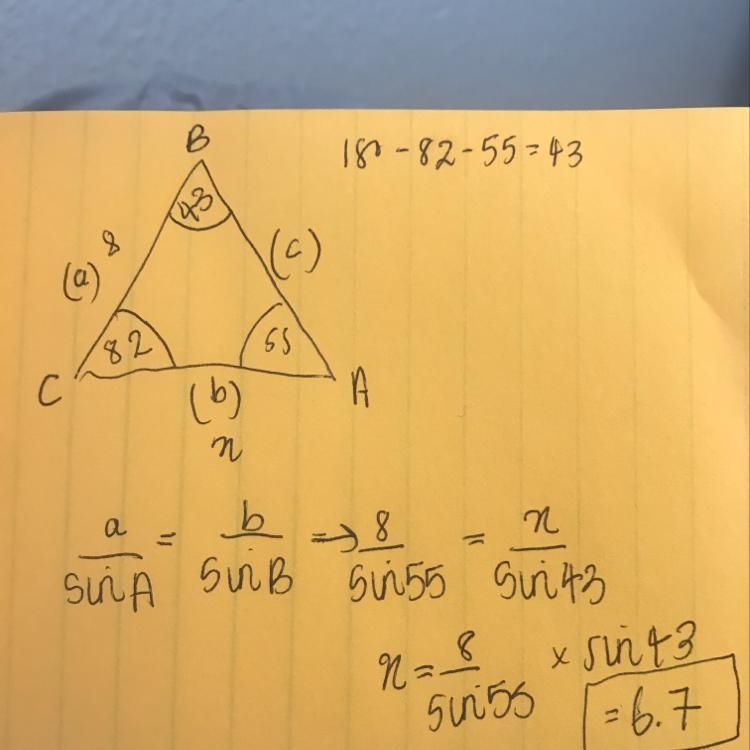 B
180 - 82 - 55 = 43
43
(a) 8
(c)
82
55
C
(b)
A
x
a/sin A = b/sin B → 8/sin 55 = x/sin 43
x = 8/sin 55 × sin 43
= 6.7